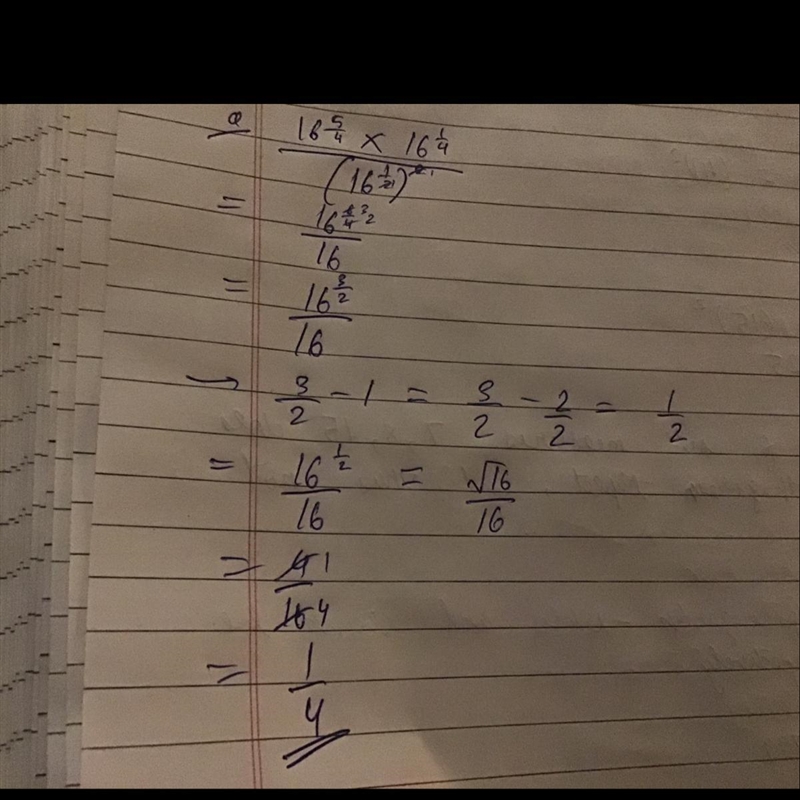 Q 16^(5/4) × 16^(1/4)
(16^(1/2))^2
= 16^(6/4) 3 2
16
= 16^(3/2)
16
→ 3/2 - 1 = 3/2 - 2/2 = 1/2
= 16^(1/2) / 16 = √16 / 16
= 4 1
16 4
= 1
4